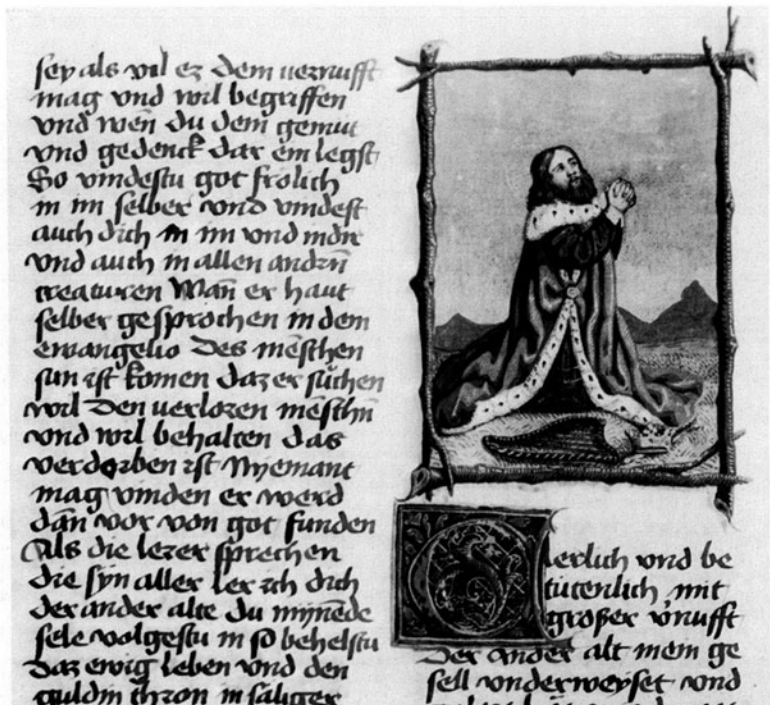 sey als vil ez dem vernufft
mag vnd wil begriffen
vnd wen du dem gemut
vnd gedenck dar ein legst
So vindestu got frolich
in im selber vnd vindest
auch dich in im vnd in dir
vnd auch in allen andern
creaturen Wan er haut
selber gesprochen in dem
ewangelio Des menschen
sun ist komen daz er suchen
wil Den verlozen meschn
vnd wil behalten das
verdorben ist Nyemant
mag vinden er werd
dan vor von got funden
Als die lerer sprechen
die syn aller ler ich dich
der ander alte du mynede
sele volgestu in so behelstu
Daz ewig leben vnd den
guldin thron in säliger
lerlich vnd be
tütenlich mit
großer vnufft
Der ander alt mein ge
sell vnderweyset vnd